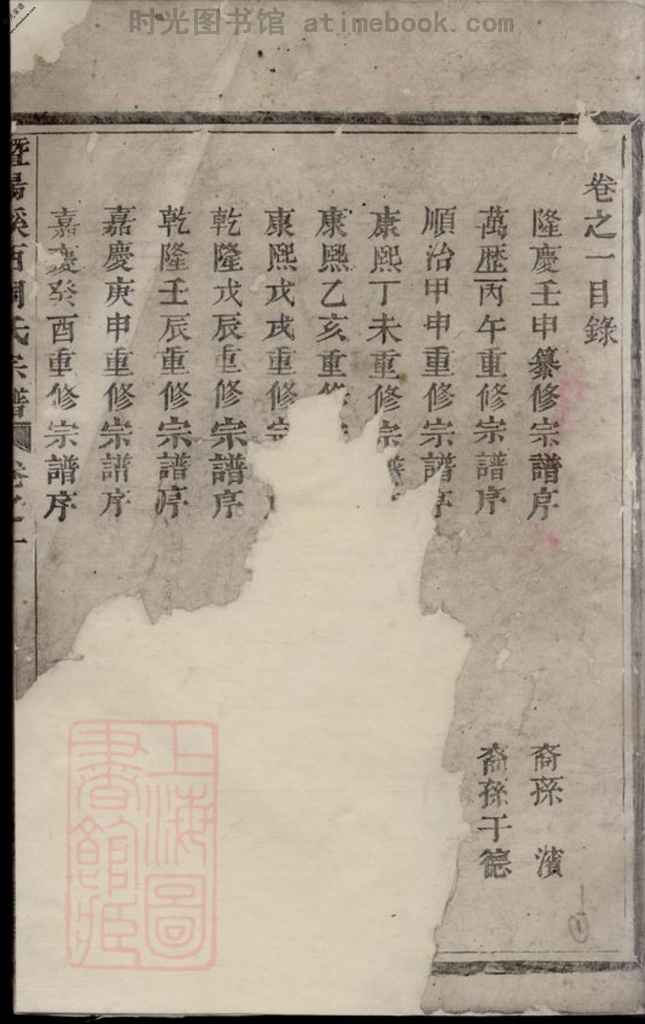 时光图书馆 atimebook.com
卷之一目錄
隆慶壬申纂修宗譜序 裔孫 濱
萬歷丙午重修宗譜序 裔孫于德
順治甲申重修宗譜序
康熙丁未重修宗譜
康熙乙亥重修
康熙戊戌重修宗
乾隆戊辰重修宗譜序
乾隆壬辰重修宗譜序
嘉慶庚申重修宗譜序
嘉慶癸酉重修宗譜序
暨陽溪西周氏宗譜 卷之一
上海圖書館藏
1